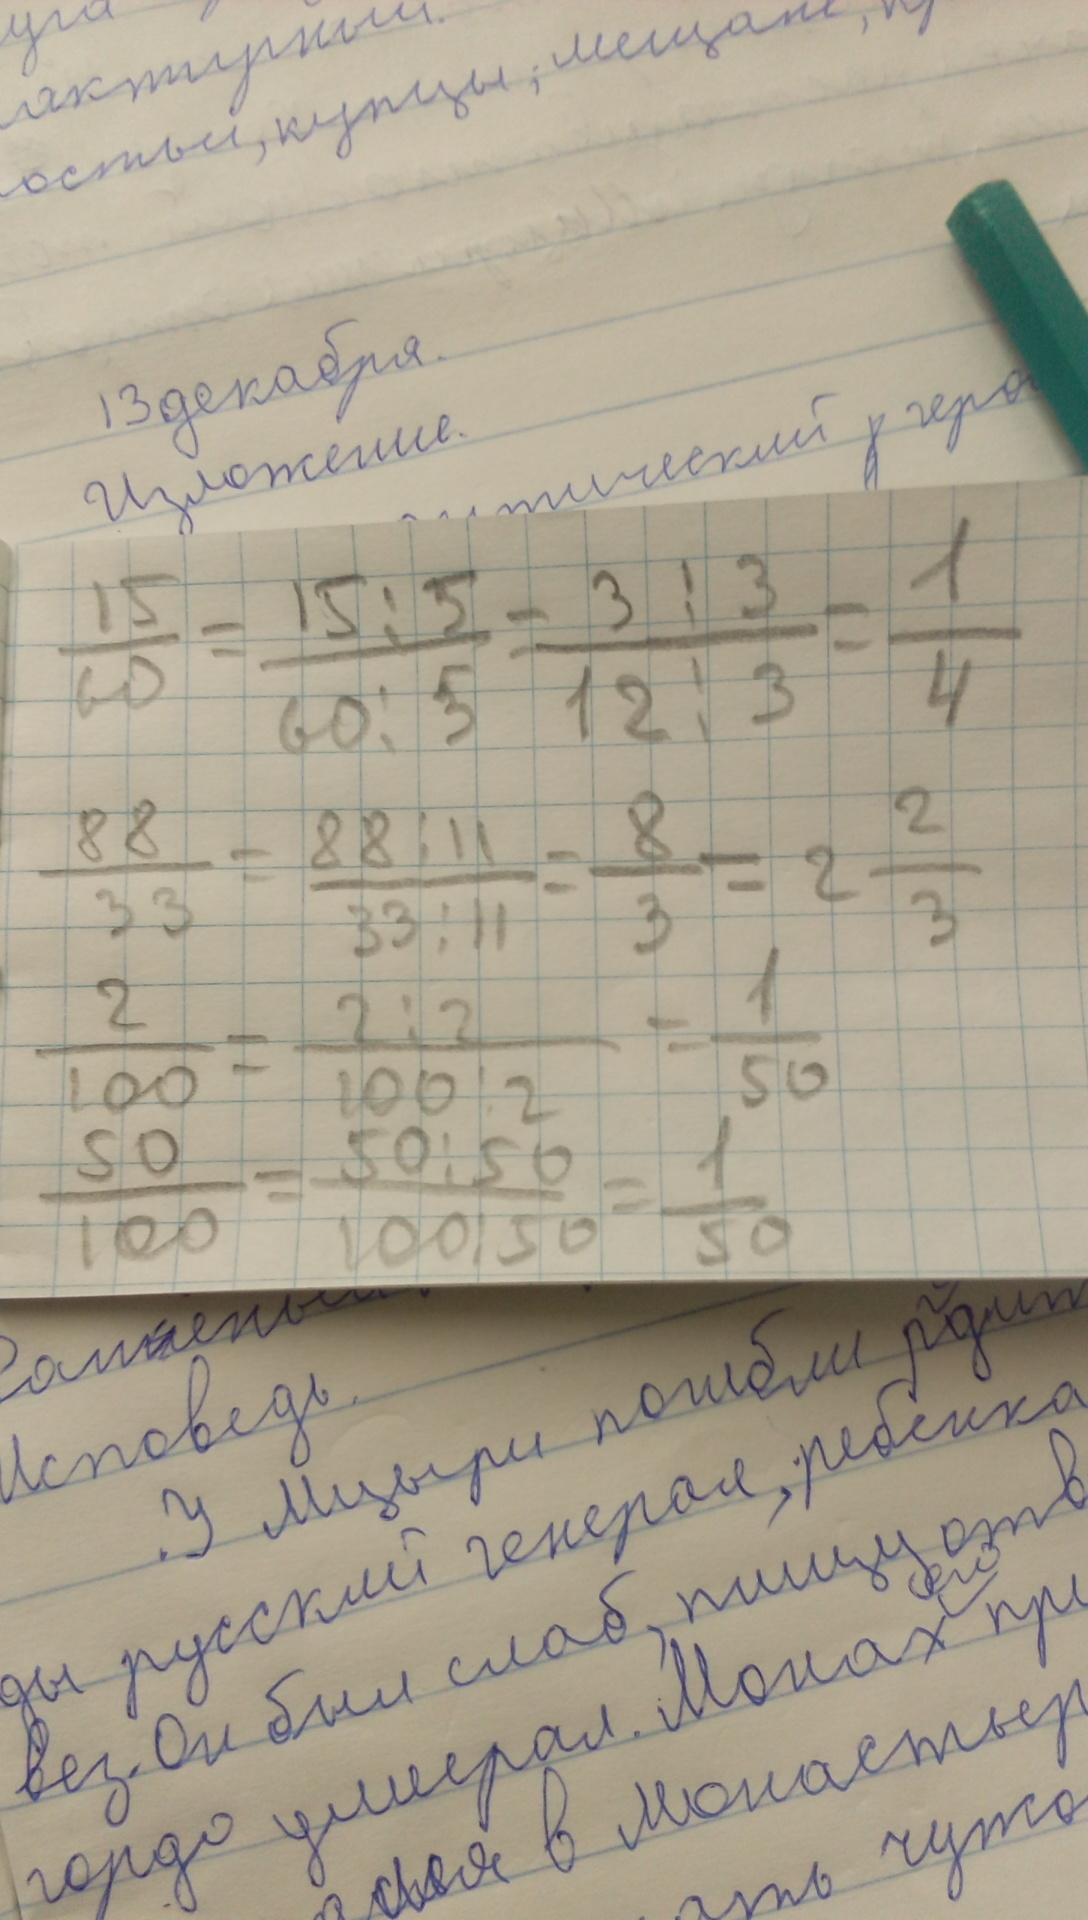 уга
лактурный.
остьи, купцы, мещане,
13 декабря.
Изложение.
15/60 = 15:5/60:5 = 3:3/12:3 = 1/4
88/33 = 88:11/33:11 = 8/3 = 2 2/3
2/100 = 2:2/100:2 = 1/50
50/100 = 50:50/100:50 = 1/50
Исповедь.
У Мцыри погибли
ды русский генерал, ребенка
вез. Он был слаб, пищу отв
его
гордо умирал. Монах при
в монастыре
ать чужо